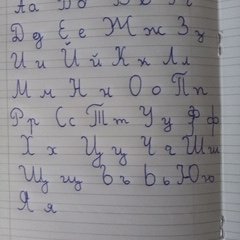 Аа Бб Вв Гг
Дд Ее Жж Зз
Ии Йй Кк Лл
Мм Нн Оо Пп
Рр Сс Тт Уу Фф
Хх Цц Чч Шш
Щщ Ъъ Ьь Юю
Яя